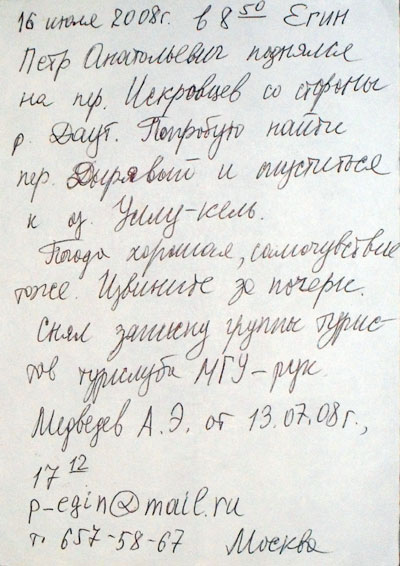 16 июля 2008г. в 8 50 Егин
Петр Анатольевич поднялся
на пер. Искровцев со стороны
р. Даут. Попробую найти
пер. Дырявый и спуститься
к оз. Уллу-кель.
Погода хорошая, самочувствие
тоже. Извините за почерк.
Снял записку группы турис-
тов турклуба МГУ-рук.
Медведев А.Э. от 13.07.08г.,
17 12
p-egin@mail.ru
т. 657-58-67 Москва